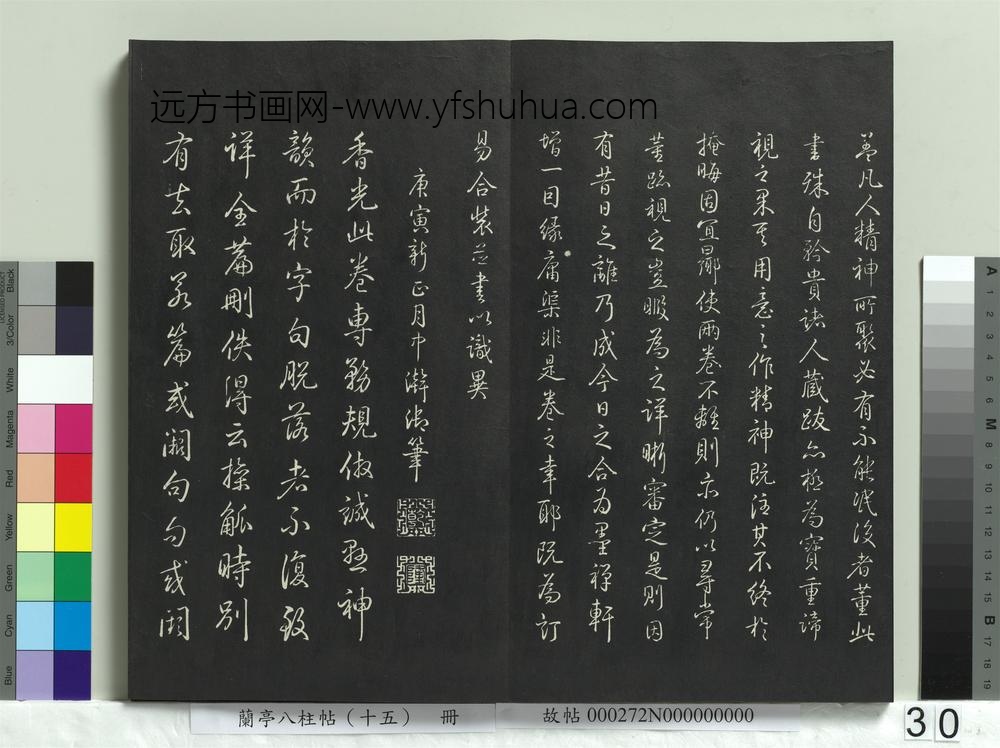 远方书画网-www.yfshuhua.com
蓋凡人精神所聚必有不能泯没者董此
書殊自矜貴諸人藏跋亦極為寶重諦
視之果其用意之作精神既注其不終於
掩晦固宜曏使兩卷不離則亦仍以尋常
董蹟視之豈暇為之詳晰審定是則因
有昔日之離乃成今日之合為墨禪軒
增一因緣庸渠非是卷之幸耶既為訂
易合裝並書以識異
庚寅新正月中澣御筆
香光此卷專務規倣誠懸神
韻而於字句脫落者不復致
詳全篇刪佚得云操觚時別
有去取若篇或闕句句或闕
蘭亭八柱帖（十五） 冊
故帖 000272N000000000
30
Black
3/Color
White
Magenta
Red
Yellow
Green
Cyan
Blue
A
1
2
3
4
5
6
M
8
9
10
11
12
13
14
15
B
17
18
19